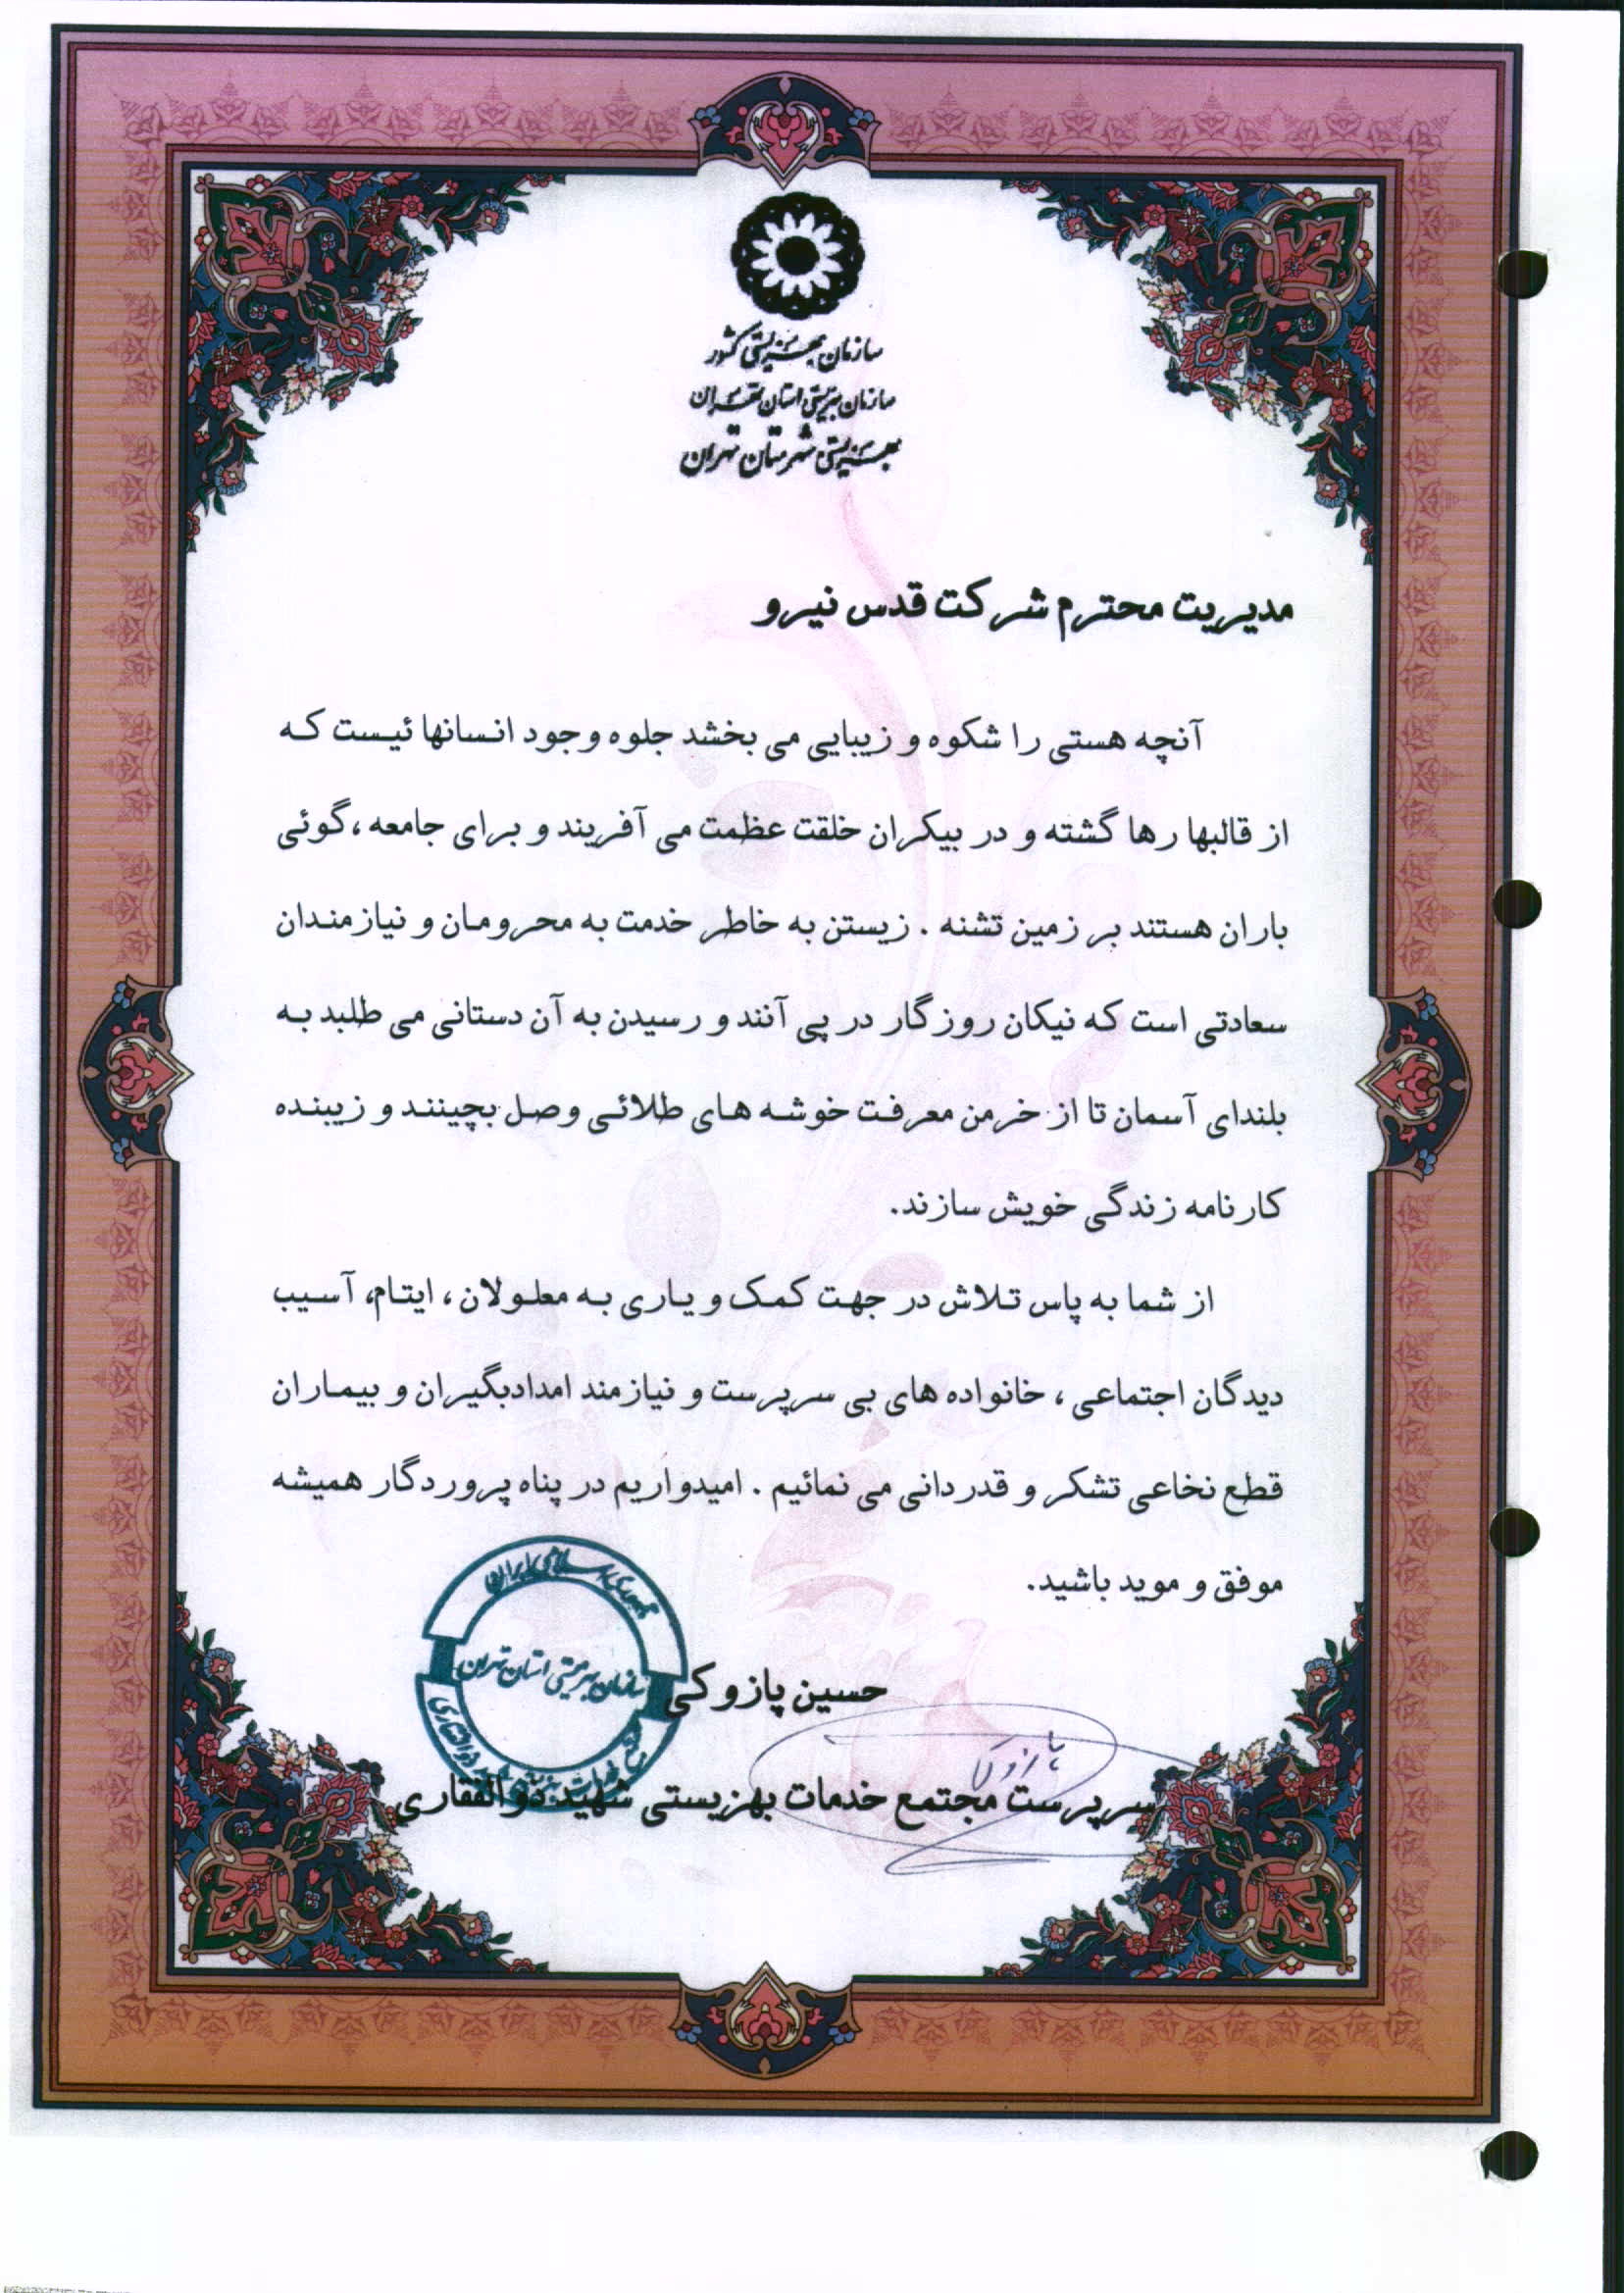 سازمان بهزیستی کشور
سازمان بهزیستی استان تهران
بهزیستی شهرستان تهران
مدیریت محترم شرکت قدس نیرو
آنچه هستی را شکوه و زیبایی می بخشد جلوه وجود انسانها ئیست که
از قالبها رها گشته و در بیکران خلقت عظمت می آفریند و برای جامعه ،گوئی
باران هستند بر زمین تشنه . زیستن به خاطر خدمت به محرومان و نیازمندان
سعادتی است که نیکان روزگار در پی آنند و رسیدن به آن دستانی می طلبد به
بلندای آسمان تا از خرمن معرفت خوشه های طلائی وصل بچینند و زیبنده
کارنامه زندگی خویش سازند.
از شما به پاس تلاش در جهت کمک و یاری به معلولان ، ایتام، آسیب
دیدگان اجتماعی ، خانواده های بی سرپرست و نیازمند امدادبگیران و بیماران
قطع نخاعی تشکر و قدردانی می نمائیم . امیدواریم در پناه پروردگار همیشه
موفق و موید باشید.
جمهوری اسلامی ایران
سازمان بهزیستی استان تهران
حسین پازوکی
سرپرست مجتمع خدمات بهزیستی شهید ذوالفقاری